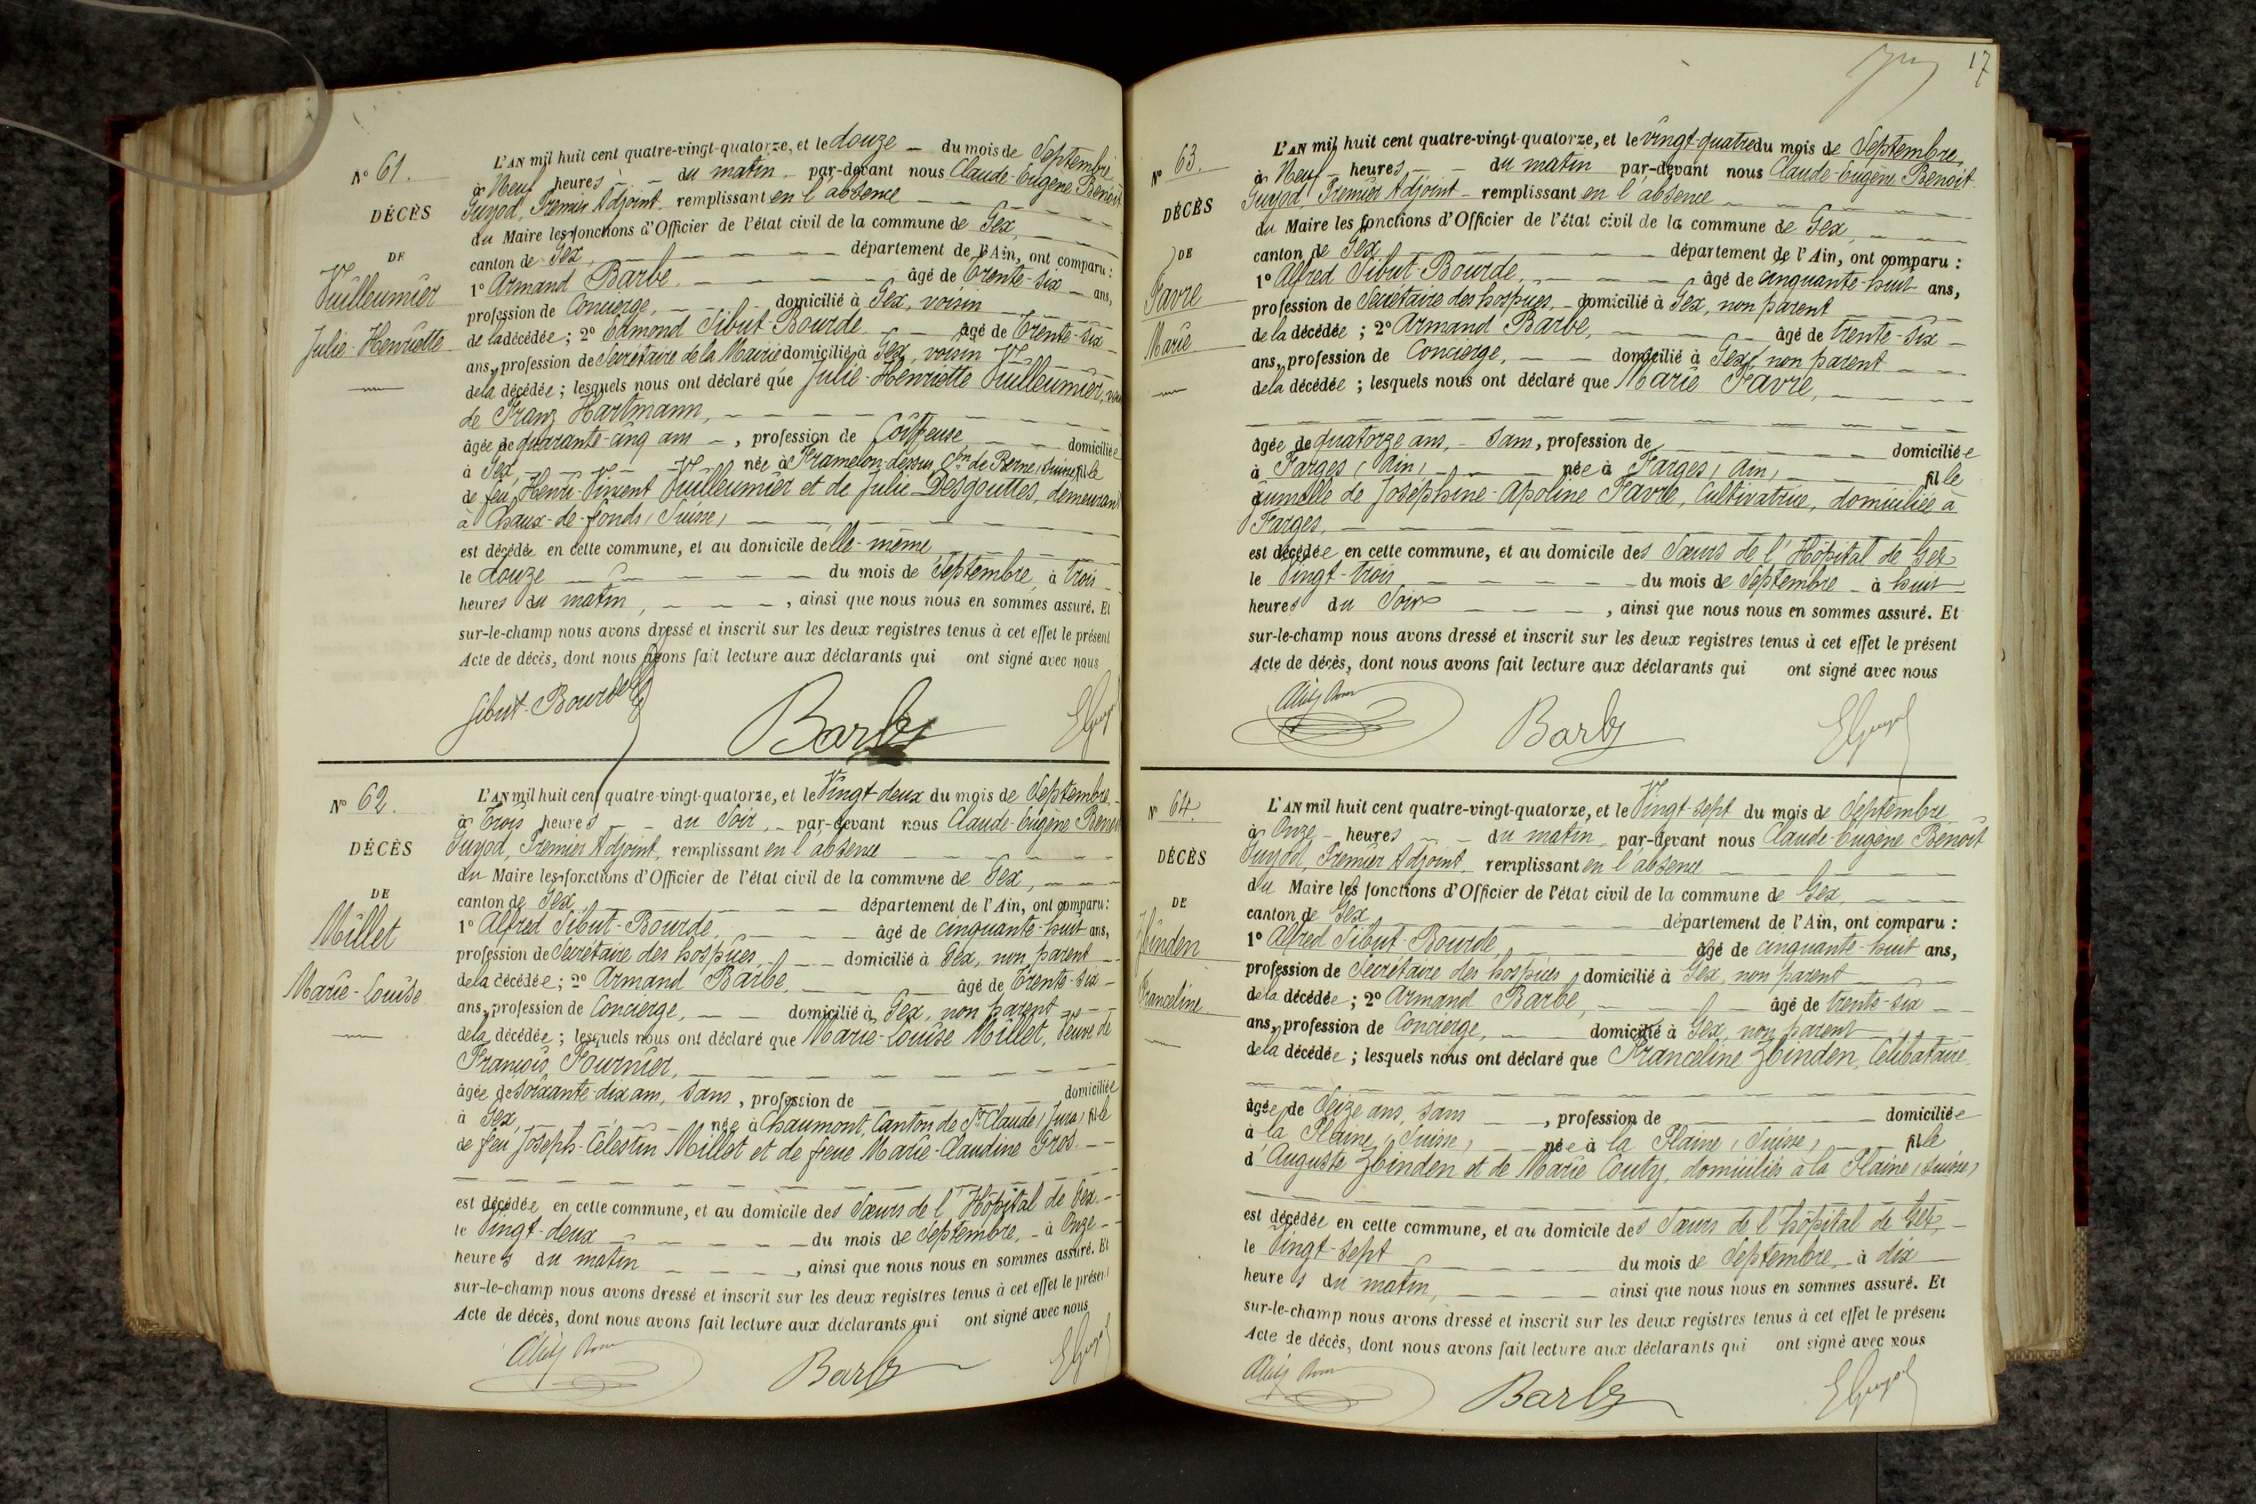 17
N° 61.
DÉCÈS
DE
Vuilleumier
Julie-Henriette
L'AN mil huit cent quatre-vingt-quatorze, et le douze du mois de Septembre
à Neuf heures du matin par-devant nous Claude-Eugène Benoit
Guyod, Premier Adjoint remplissant en l'absence
du Maire les fonctions d'Officier de l'état civil de la commune de Gex,
canton de Gex, département de l'Ain, ont comparu :
1° Armand Barbe âgé de trente-six ans,
profession de Concierge, domicilié à Gex, voisin
de la décédée ; 2° Edmond Sibut-Bourde âgé de trente-six
ans, profession de Secrétaire de la Mairie domicilié à Gex, voisin
de la décédée ; lesquels nous ont déclaré que Julie-Henriette Vuilleumier,
de Franz Hartmann,
âgée de quarante-cinq ans, profession de Coiffeuse domiciliée
à Gex, née à Tramelan-dessus, Con de Berne (Suisse) fille
de feu Henri-Vincent Vuilleumier et de Julie Desgouttes, demeurant
à Chaux-de-fonds (Suisse)
est décédée en cette commune, et au domicile d'elle-même
le douze du mois de Septembre à trois
heures du matin, ainsi que nous nous en sommes assuré. Et
sur-le-champ nous avons dressé et inscrit sur les deux registres tenus à cet effet le présent
Acte de décès, dont nous avons fait lecture aux déclarants qui ont signé avec nous
Sibut-Bourde Barbe EGuyod
N° 62.
DÉCÈS
DE
Millet
Marie-Louise
L'AN mil huit cent quatre-vingt-quatorze, et le Vingt-deux du mois de Septembre
à Trois heures du Soir, par-devant nous Claude-Eugène Benoit
Guyod, Premier Adjoint, remplissant en l'absence
du Maire les fonctions d'Officier de l'état civil de la commune de Gex,
canton de Gex, département de l'Ain, ont comparu :
1° Alfred Sibut-Bourde, âgé de cinquante-huit ans,
profession de Secrétaire des hospices, domicilié à Gex, non parent
de la décédée ; 2° Armand Barbe, âgé de trente-six
ans, profession de Concierge, domicilié à Gex, non parent
de la décédée ; lesquels nous ont déclaré que Marie-Louise Millet, Veuve de
François Fournier,
âgée de soixante-dix ans, sans, profession de domiciliée
à Gex, née à Chaumont, Canton de St Claude (Jura) fille
de feu Joseph-Célestin Millet et de feue Marie-Claudine Gros
est décédée en cette commune, et au domicile des Sœurs de l'Hôpital de Gex
le Vingt-deux du mois de Septembre, à Onze
heures du matin, ainsi que nous nous en sommes assuré. Et
sur-le-champ nous avons dressé et inscrit sur les deux registres tenus à cet effet le présent
Acte de décès, dont nous avons fait lecture aux déclarants qui ont signé avec nous
Barbe EGuyod
N° 63.
DÉCÈS
DE
Favre
Marie
L'AN mil huit cent quatre-vingt-quatorze, et le vingt-quatre du mois de Septembre
à Neuf heures du matin par-devant nous Claude-Eugène Benoit
Guyod, Premier Adjoint remplissant en l'absence
du Maire les fonctions d'Officier de l'état civil de la commune de Gex,
canton de Gex département de l'Ain, ont comparu :
1° Alfred Sibut-Bourde, âgé de cinquante-huit ans,
profession de Secrétaire des hospices, domicilié à Gex, non parent
de la décédée ; 2° Armand Barbe, âgé de trente-six
ans, profession de Concierge, domicilié à Gex, non parent
de la décédée ; lesquels nous ont déclaré que Marie Favre,
âgée de quatorze ans, sans, profession de domiciliée
à Farges (Ain) née à Farges (Ain) fille
jumelle de Joséphine-Apoline Favre, Cultivatrice, domiciliée à
Farges,
est décédée en cette commune, et au domicile des Sœurs de l'Hôpital de Gex
le Vingt-trois du mois de Septembre à huit
heures du Soir, ainsi que nous nous en sommes assuré. Et
sur-le-champ nous avons dressé et inscrit sur les deux registres tenus à cet effet le présent
Acte de décès, dont nous avons fait lecture aux déclarants qui ont signé avec nous
Barbe EGuyod
N° 64.
DÉCÈS
DE
Zbinden
Franceline
L'AN mil huit cent quatre-vingt-quatorze, et le Vingt-sept du mois de Septembre
à Onze heures du matin par-devant nous Claude-Eugène Benoit
Guyod, Premier Adjoint, remplissant en l'absence
du Maire les fonctions d'Officier de l'état civil de la commune de Gex,
canton de Gex département de l'Ain, ont comparu :
1° Alfred Sibut-Bourde, âgé de cinquante-huit ans,
profession de Secrétaire des hospices, domicilié à Gex, non parent
de la décédée ; 2° Armand Barbe, âgé de trente-six
ans, profession de Concierge, domicilié à Gex, non parent
de la décédée ; lesquels nous ont déclaré que Franceline Zbinden, Célibataire
âgée de Seize ans, sans, profession de domiciliée
à la Plaine (Suisse) née à la Plaine (Suisse) fille
d'Auguste Zbinden et de Marie Couty, domiciliés à la Plaine (Suisse)
est décédée en cette commune, et au domicile des Sœurs de l'hôpital de Gex,
le Vingt-sept du mois de Septembre à dix
heures du matin, ainsi que nous nous en sommes assuré. Et
sur-le-champ nous avons dressé et inscrit sur les deux registres tenus à cet effet le présent
Acte de décès, dont nous avons fait lecture aux déclarants qui ont signé avec nous
Barbe EGuyod